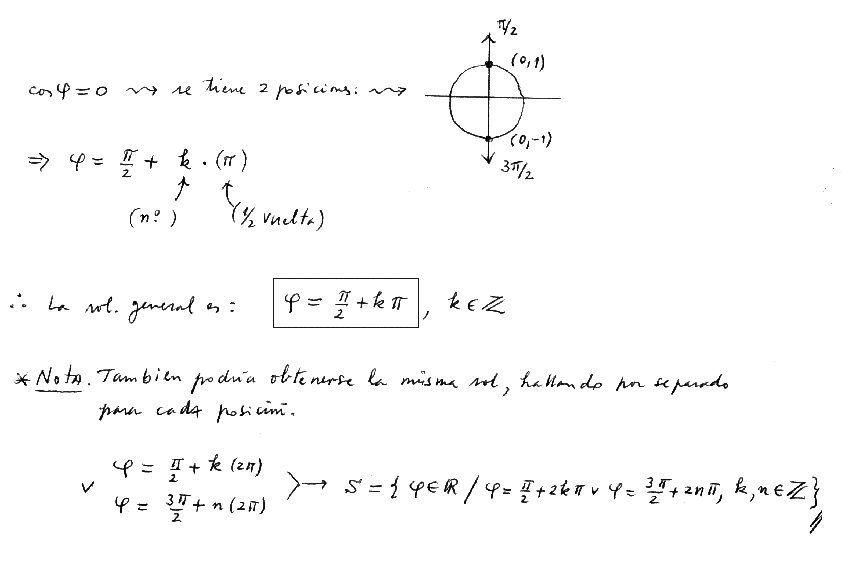 π/2
cos φ = 0 ⇝ se tiene 2 posiciones: ⇝
(0,1)
(0,-1)
3π/2
⇒ φ = π/2 + k · (π)
(nº) (1/2 vuelta)
∴ La sol. general es: φ = π/2 + kπ, k ∈ ℤ
* Nota. Tambien podría obtenerse la misma sol, hallando por separado
para cada posición.
φ = π/2 + k (2π)
∨
φ = 3π/2 + n (2π)
S = { φ ∈ ℝ / φ = π/2 + 2kπ ∨ φ = 3π/2 + 2nπ, k, n ∈ ℤ }